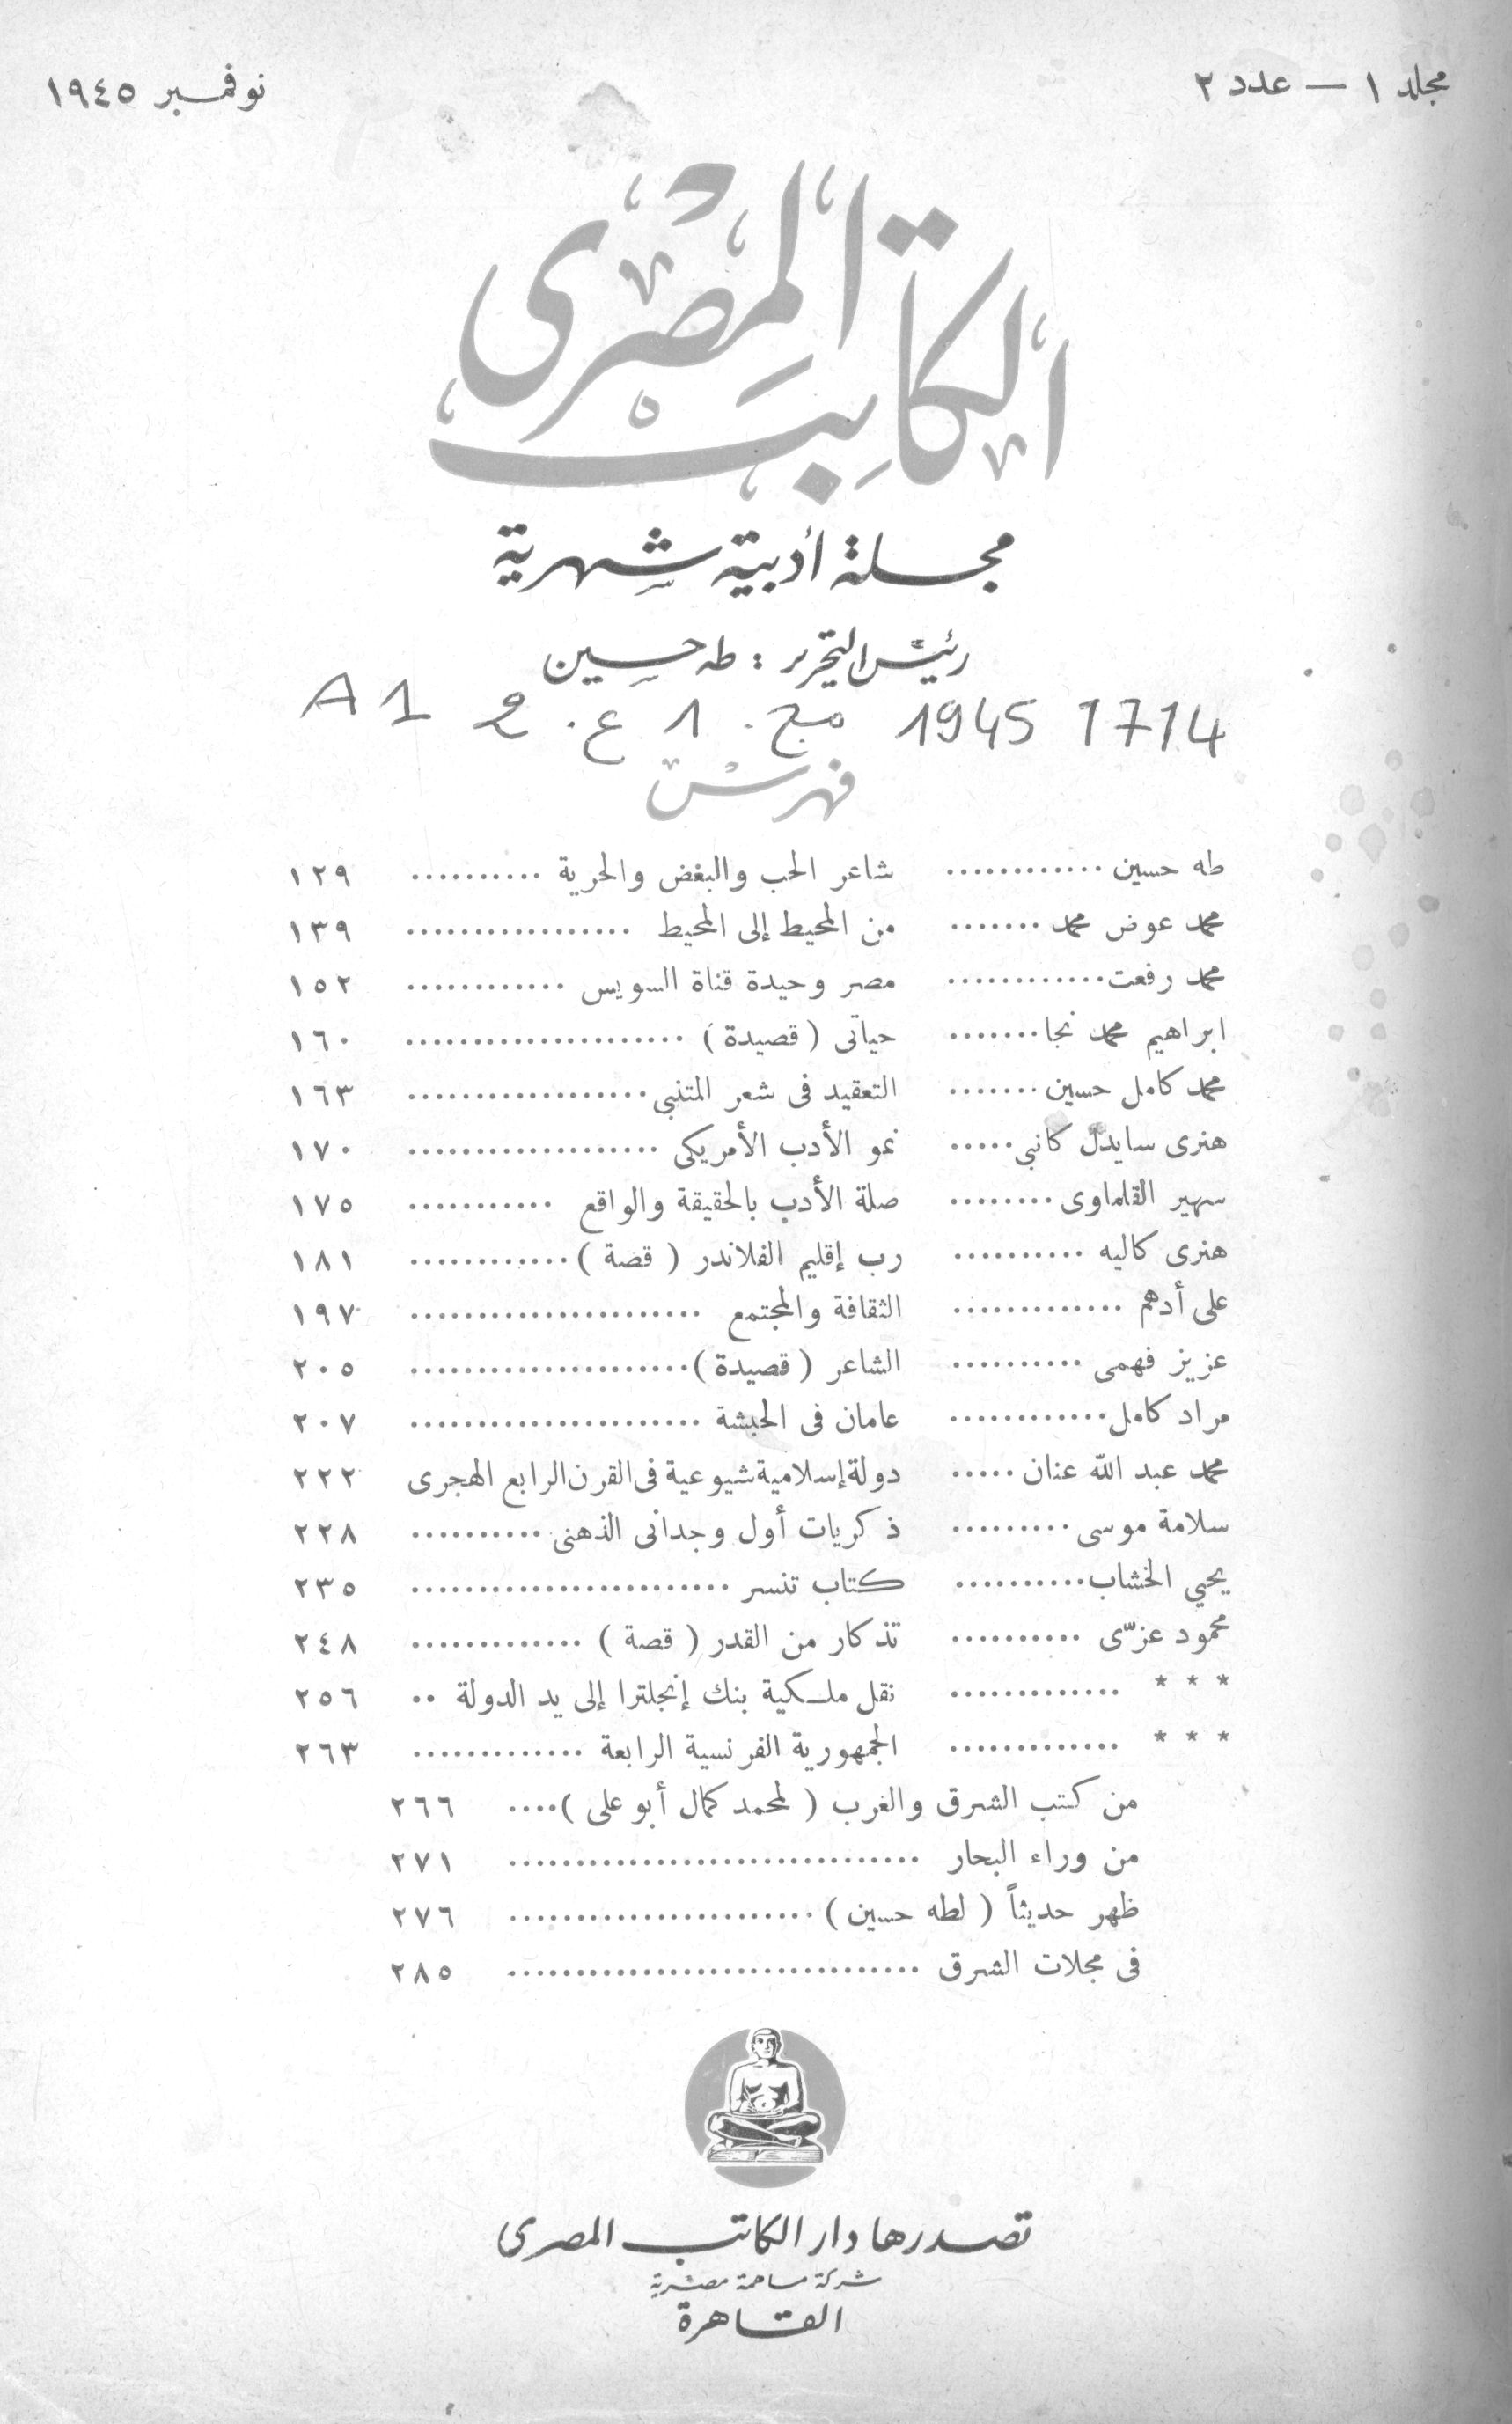 مجلد ١ — عدد ٢
نوفمبر ١٩٤٥
الكاتب المصرى
مجلة أدبية شهرية
رئيس التحرير : طه حسين
A 1 2 ع. 1 مج. 1945 1714
فهرس
طه حسين ............ شاعر الحب والبغض والحرية .......... ١٢٩
محمد عوض محمد ....... من المحيط إلى المحيط ................. ١٣٩
محمد رفعت............ مصر وحيدة قناة السويس ............ ١٥٢
ابراهيم محمد نجا....... حياتى ( قصيدة ) ..................... ١٦٠
محمد كامل حسين ....... التعقيد فى شعر المتنبى.................. ١٦٣
هنرى سايدل كانبى ..... نمو الأدب الأمريكى ................... ١٧٠
سهير القلماوى ........ صلة الأدب بالحقيقة والواقع ........... ١٧٥
هنرى كاليه .......... رب إقليم الفلاندر ( قصة ) ............ ١٨١
على أدهم ............. الثقافة والمجتمع ...................... ١٩٧
عزيز فهمى .......... الشاعر ( قصيدة ) ..................... ٢٠٥
مراد كامل............ عامان فى الحبشة ...................... ٢٠٧
محمد عبد الله عنان ..... دولة إسلامية شيوعية فى القرن الرابع الهجرى ٢٢٢
سلامة موسى ......... ذكريات أول وجدانى الذهنى .......... ٢٢٨
يحيي الخشاب.......... كتاب تنسر ........................ ٢٣٥
محمود عزّمى .......... تذكار من القدر ( قصة ) ............. ٢٤٨
* * * ............. نقل ملكية بنك إنجلترا إلى يد الدولة .. ٢٥٦
* * * ............. الجمهورية الفرنسية الرابعة ............. ٢٦٣
من كتب الشرق والغرب ( لمحمد كمال أبو على ) .... ٢٦٦
من وراء البحار ............................... ٢٧١
ظهر حديثاً ( لطه حسين ) ....................... ٢٧٦
فى مجلات الشرق ............................... ٢٨٥
تصدرها دار الكاتب المصرى
شركة مساهمة مصرية
القاهرة